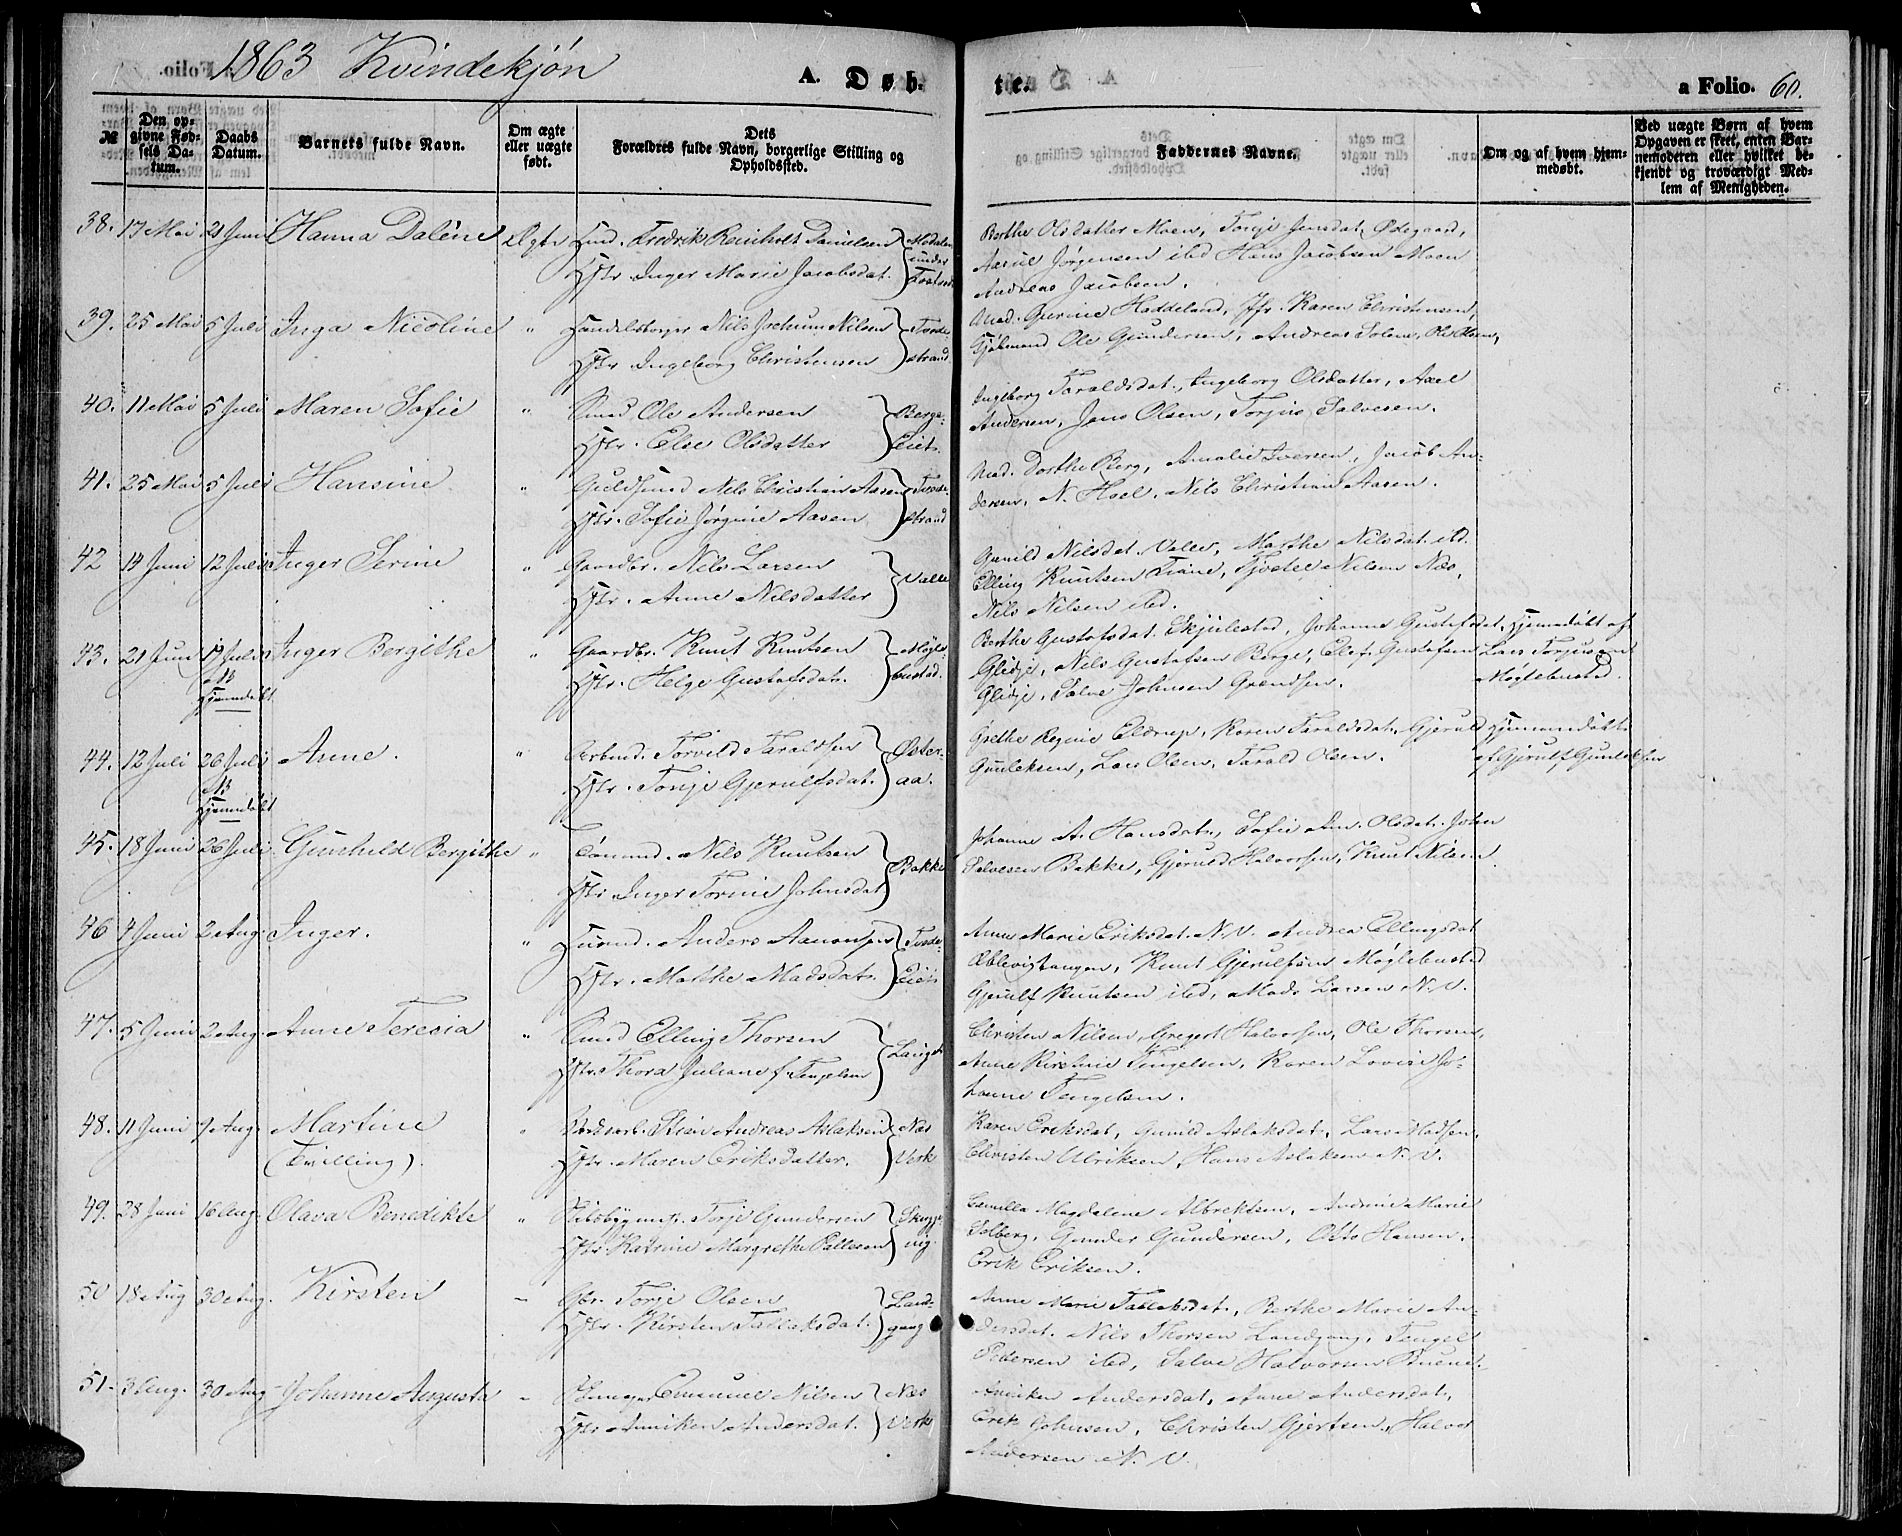 1863 Kvindekjøn A. Døb- te. a Folio. 60.
№
Den opgivne Fødsels Datum.
Daabs Datum.
Barnets fulde Navn.
Om ægte eller uægte født.
Dets Forældres fulde Navn, borgerlige Stilling og Opholdssted.
Faddernes Navne.
Om og af hvem hjemmedøbt.
Ved uægte Børn af hvem Opgaven er skeet, enten Barnemoderen eller hvilket bekjendt og troværdigt Medlem af Menigheden.
38. 17 Mai 21 Juni Hanna Daléne Ægte Fredrik Reinholt Danielsen
Hstr. Inger Marie Jacobsdat.
Berthe Olsdatter Moen, Torje Jensdat. Ødegaard,
Aasul Jørgensen ibd Hans Jacobsen Moen
Andreas Jacobsen.
39. 25 Mai 5 Juli Inga Nicoline " Handelsborger Nils Jochum Nilsen Tvede-
Hstr Ingeborg Christensen strand
Mad. Gurine Haddeland, Jfr. Karen Christensen,
Ole Gundersen, Andreas Ole Olsen,
40. 11 Mai 5 Juli Maren Sofie " Smed Ole Andersen Berge-
Hstr. Else Olsdatter Eiet.
Ingeborg Taraldsdat., Ingeborg Olsdatter, Axel
Andersen, Jens Olsen, Torjus Salvesen.
41. 25 Mai 5 Juli Hansine " Guldsmed Nils Christian Aasen Tvede-
Hstr. Sofie Jørgine Aasen strand
Mad. Dorthe Berg, Amalie Iversen, Jacob An-
dersen, N. Hoel, Nils Christian Aasen.
42 14 Juni 12 Juli Inger Serine " Gaardbr. Nils Larsen Valle
Hstr. Anne Nilsdatter
Gunild Nilsdat. Valle, Marthe Nilsdat ibd.
Elling Knutsen Tiane, Tjostel Nilsen Næs,
Nils Nilsen ibd.
43. 21 Juni 19 Juli Inger Bergithe " Gaardbr. Knut Knutsen Møgle-
NB Hjemmdøbt Hstr. Helge Gustafsdat. bustad.
Berthe Gustafsdat. Skjulestad, Johanne Gustafsdat. Hjemmedøbt af
Glidje, Nils Gustafsen Berge, Elef Gustafsen Lars Torjusen
Glidje, Salve Johnsen Grændsen. Møglebustad.
44. 12 Juli 26 Juli Anne. " Torvild Taraldsen Øster-
NB Hjemmdøbt Hstr. Torje Gjerulfsdat. aa.
Grethe Regine Eldrup, Karen Taraldsdat, Gjerulf Hjemmedøbt
Gunleksen, Lars Olsen, Tarald Olsen. af Gjerulf Gunleksen
45. 18 Juni 26 Juli Gunhild Bergithe " Nils Knutsen Bakke
Hstr Inger Torine Johnsdat
Johanne A. Hansdat., Sofie Olsdat. John
Salvesen Bakke, Gjeruld Halvorsen, Knut Nilsen.
46 4 Juni 2 Aug. Inger. " Anders Aanonsen Tvede-
Hstr. Marthe Madsdat. Eiet.
Anne Marie Eriksdat. N.V. Andrea Ellingsdat
Æblevigtangen, Knut Gjerulfsen Møglebustad
Gjerulf Knutsen ibd, Mads Larsen N.V.
47. 5 Juni 2 Aug. Anne Teresia " Smed Elling Thorsen Langet
Hstr. Thora Juliane f. Tengelsen
Christen Nilsen, Gregert Halvorsen, Ole Thorsen,
Anne Kirstine Tengelsen, Karen Lovise Jo-
hanne Tengelsen.
48. 11 Juni 9 Aug. Martine " Stian Andreas Aslaksen Næs
(Tvilling). Hstr. Maren Eriksdatter. Verk
Karen Eriksdat, Gunild Aslaksdat., Lars Madsen,
Christen Ulriksen, Hans Aslaksen N.V.
49. 28 Juni 16 Aug. Olava Benedikte " Skibsbygm. Torje Gundersen
Hstr Katrine Margrethe Pallesen
Camilla Magdalene Albrektsen, Andrine Marie
Solberg, Gunder Gundersen, Otto Hansen.
Erik Eriksen.
50 18 Aug 30 Aug. Kirsten " Gbr. Torje Olsen Land-
Hstr. Kirsten Tallaksdat. gang
Anne Marie Tallaksdat., Berthe Marie An-
dersdat. Nils Thorsen Landgang, Tengel
Pedersen ibd, Salve Halvorsen Buene.
51. 3 Aug. 30 Aug Johanne Augusta " Emanuel Nilsen Næs
Hstr Anniken Andersdat. Verk
Aniken Andersdat, Anne Andersdat,
Erik Johnsen, Christen Gjertsen, Halvor
Andersen N.V.